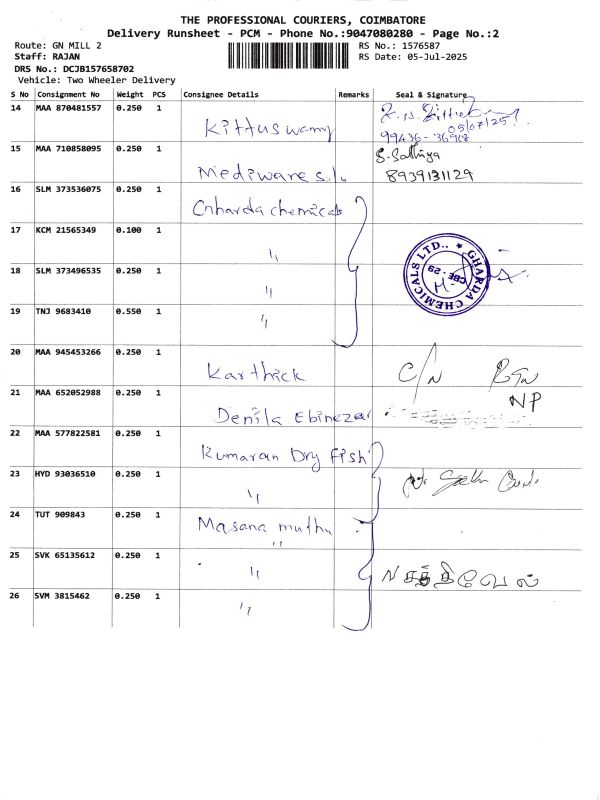 THE PROFESSIONAL COURIERS, COIMBATORE
Delivery Runsheet - PCM - Phone No.:9047080280 - Page No.:2
Route: GN MILL 2 RS No.: 1576587
Staff: RAJAN RS Date: 05-Jul-2025
DRS No.: DCJB157658702
Vehicle: Two Wheeler Delivery
S No Consignment No Weight PCS Consignee Details Remarks Seal & Signature
14 MAA 870481557 0.250 1 Kittuswamy 05/07/25
99436-36968
15 MAA 710858095 0.250 1 Mediware S.L. S. Sathiya
8939131129
16 SLM 373536075 0.250 1 Gharda chemicals
17 KCM 21565349 0.100 1 "
GHARDA CHEMICALS LTD.. ★
CBE - 29
18 SLM 373496535 0.250 1 "
19 TNJ 9683410 0.550 1 "
20 MAA 945453266 0.250 1 Karthick C/N
NP
21 MAA 652052988 0.250 1 Denila Ebinezar
22 MAA 577822581 0.250 1 Kumaran Dry fish
23 HYD 93036510 0.250 1 "
24 TUT 909843 0.250 1 Masana muthu
"
25 SVK 65135612 0.250 1 " N சக்திவேல்
26 SVM 3815462 0.250 1 "